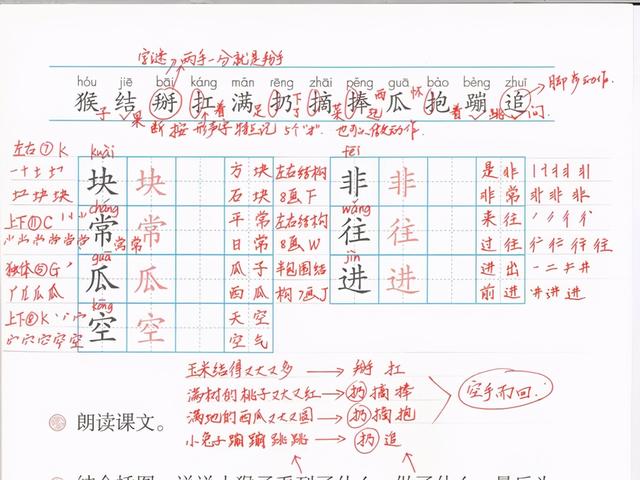 字谜→两手一分就是掰手
hóu jiē bāi káng mǎn rēng zhāi pěng guā bào bèng zhuī
猴子 结果 掰断 扛着 满足 扔下 摘菜 捧起 西瓜 怀抱着 蹦跳 追问
脚步动作.
按形声字特点记 5个"扌" 也可以做动作.
左右⑦K kuài fēi
一十土圵 块 块 方块 左右结构 非 非 是非
圵块块 石块 8画下 非常 非非非
上下⑪C cháng wǎng
常 常 平常 左右结构 往 往 来往
日常 8画W 过往 往往
独体⑤G guā jìn
瓜 瓜 瓜子 半包围结 进 进 进出 一二
瓜瓜 西瓜 构7画J 前进 进进
上下⑧K kōng
空 空 天空
空空 空气
玉米结得又大又多→掰 扛
满树的桃子又大又红→扔摘捧
满地的西瓜又大又圆→扔摘抱
空手而回.
朗读课文。
小兔子蹦蹦跳跳→扔 追